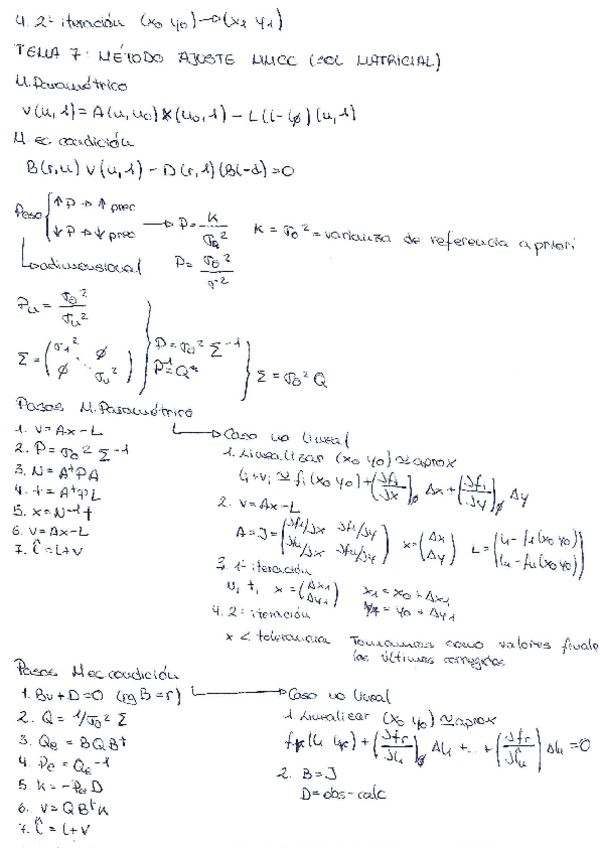 4. 2ª iteración (x₀ y₀) → (x₁ y₁)
TEMA 7: MÉTODO AJUSTE MMCC (SOL MATRICIAL)
M. Paramétrico
V(n,1) = A(n,u₀) X(u₀,1) - L(l-l∅)(n,1)
M. ec. condición
B(r,n) V(n,1) - D(r,1)(B l-d) = 0
Peso { ↑P → ↑ prec → P = K/σ₀² K = σ₀² = varianza de referencia a priori
↓P → ↓ prec
↳ adimensional P = σ₀²/σ²
Pₙ = σ₀²/σₙ²
Σ = (σ₁² ∅ ∅ σₙ²) } P = σ₀² Σ⁻¹ P⁻¹ = Q } Σ = σ₀² Q
Pasos M. Paramétrico
1. V = Ax - L
2. P = σ₀² Σ⁻¹
3. N = AᵗPA
4. t = AᵗPL
5. x = N⁻¹t
6. V = Ax - L
7. L̂ = L + V
→ Caso no lineal
1. Linealizar (x₀ y₀) ≃ aprox
lᵢ + vᵢ ≃ fᵢ(x₀ y₀) + (∂fᵢ/∂x)∅ Δx + (∂fᵢ/∂y)∅ Δy
2. V = Ax - L
A = J = (∂f₁/∂x ∂f₁/∂y ∂fₙ/∂x ∂fₙ/∂y) x = (Δx Δy) L = (l₁ - f₁(x₀ y₀) lₙ - fₙ(x₀ y₀))
3. 1ª iteración
N, t, x = (Δx₁ Δy₁) x₁ = x₀ + Δx₁
y₁ = y₀ + Δy₁
4. 2ª iteración
x < tolerancia Tomamos como valores finale
los últimos corregidos
Pasos M ec. condición
1. Bv + D = 0 (rg B = r)
2. Q = 1/σ₀² Σ
3. Qe = BQBᵗ
4. Pe = Qe⁻¹
5. k = -Pe D
6. V = QBᵗK
7. L̂ = L + V
→ Caso no lineal
1. Linealizar (x₀ y₀) ≃ aprox
+ (∂fr/∂l₁)∅ Δl₁ + ... + (∂fr/∂lₙ) Δlₙ = 0
2. B = J
D = obs - calc